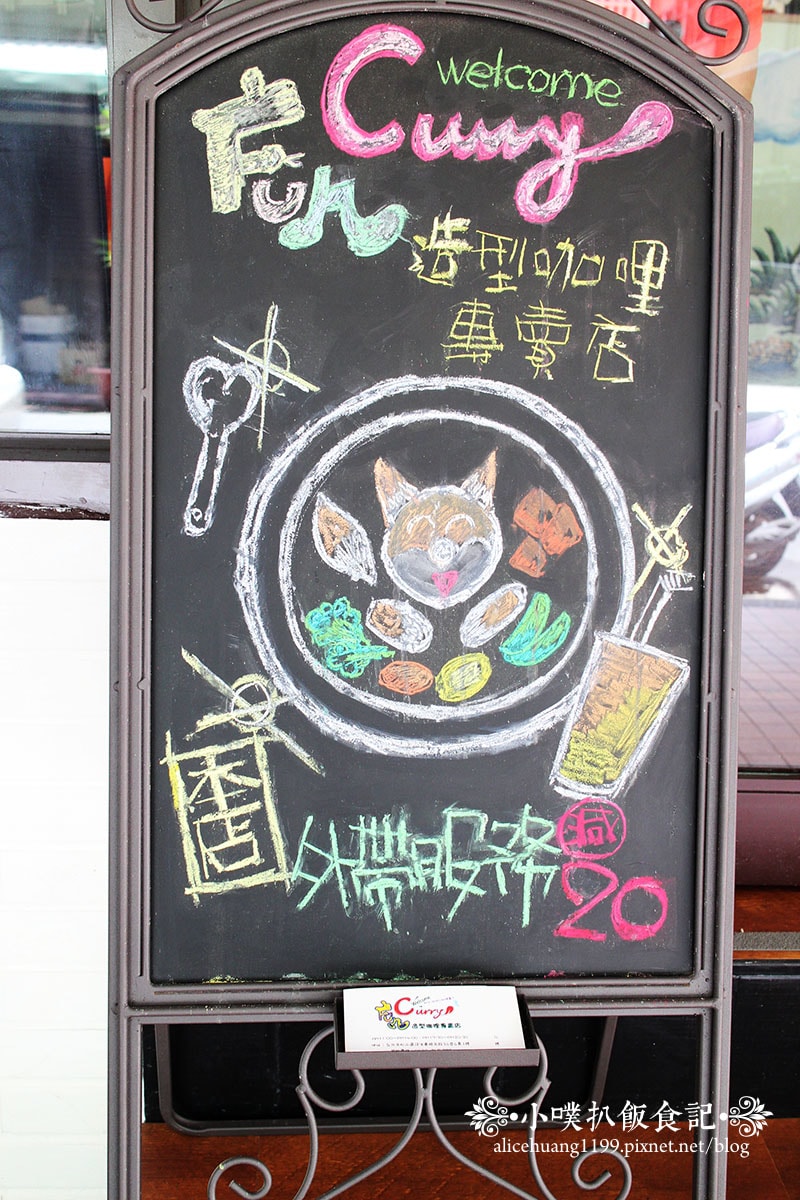 welcome
瘋 Fun Curry
造型咖哩
專賣店
本店
外帶服務 減
20
welcome
Curry
Fun
造型咖哩專賣店
•小噗扒飯食記•
alicehuang1199.pixnet.net/blog